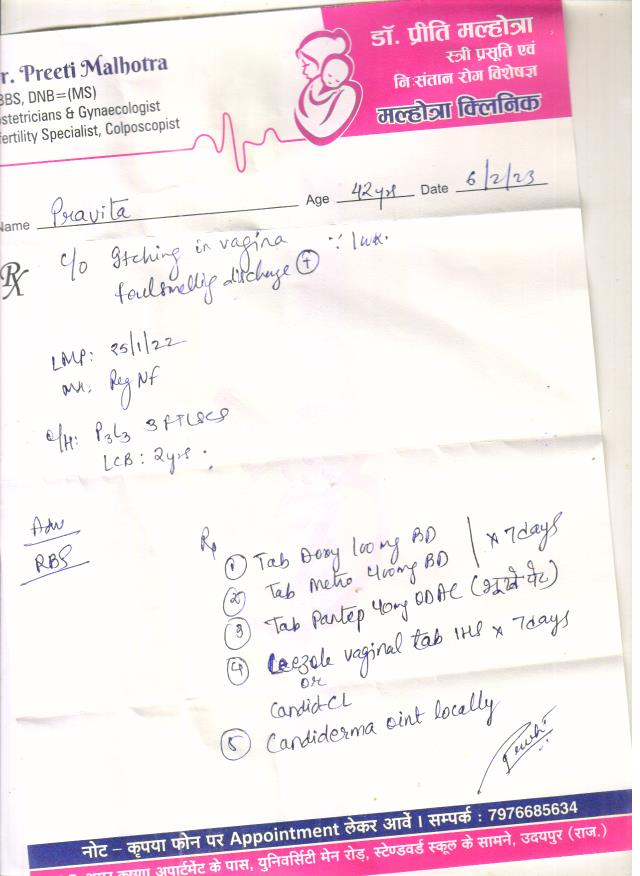 r. Preeti Malhotra
BBS, DNB=(MS)
stetricians & Gynaecologist
fertility Specialist, Colposcopist
डॉ. प्रीति मल्होत्रा
स्त्री प्रसूति एवं
निःसंतान रोग विशेषज्ञ
मल्होत्रा क्लिनिक
Name Pravita Age 42yrs Date 6/2/23
Rx
c/o Itching in vagina ∵ 1 wk.
foulsmellig discharge (+)
LMP: 25/1/22
MH: Reg NF
O/H: P3L3 3 FTLSCS
LCB: 2yrs.
Adv
RBS
Rp
① Tab Doxy 100mg BD
② Tab Metro 400mg BD x 7days
③ Tab Pantep 40mg OD AC (भूखे पेट)
④ vaginal tab 1HS x 7days
or
Candid-CL
⑤ Candiderma oint locally
नोट – कृपया फोन पर Appointment लेकर आवें । सम्पर्क : 7976685634
कृष्णा अपार्टमेंट के पास, युनिवर्सिटी मेन रोड़, स्टेण्डवर्ड स्कूल के सामने, उदयपुर (राज.)